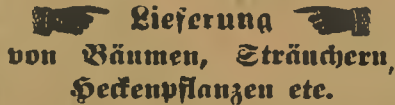 Lieferung
von Bäumen, Sträuchern,
Heckenpflanzen etc.